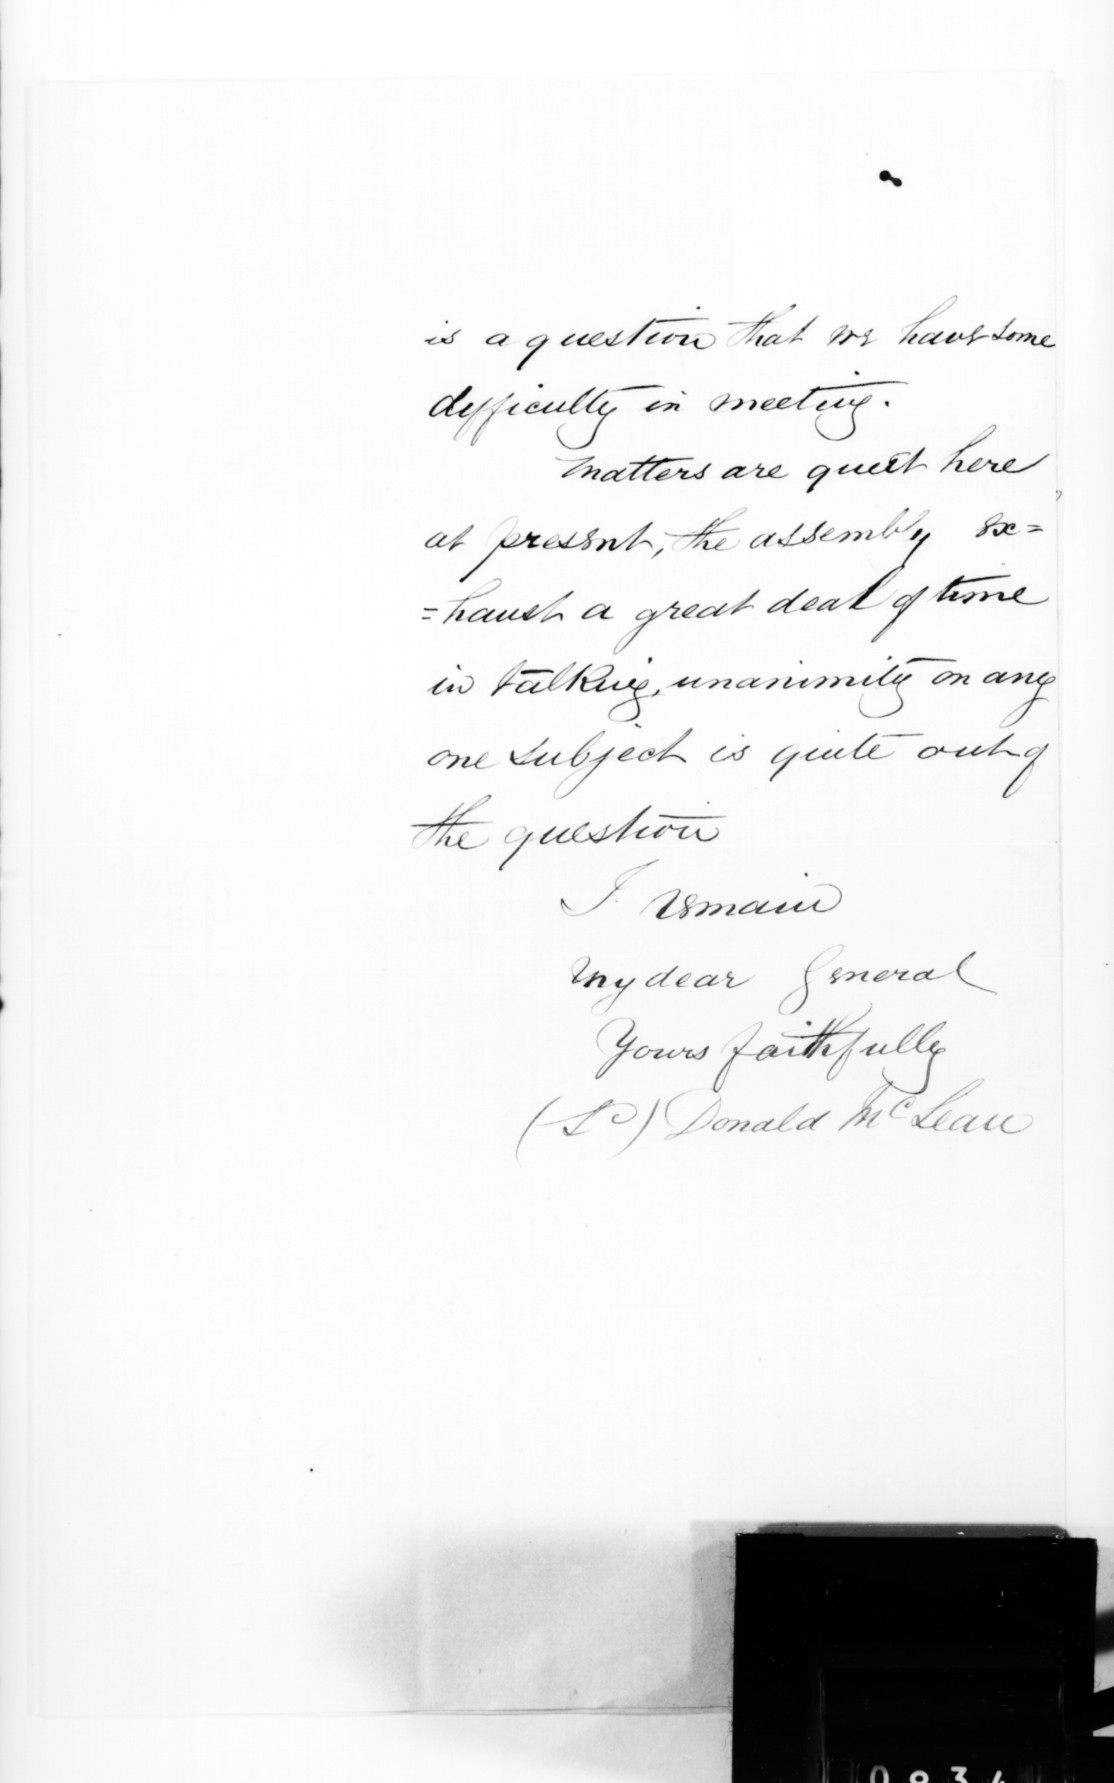 is a question that we have some
difficulty in meeting.
Matters are quiet here
at present, the assembly ex=
=haust a great deal of time
in talking, unanimity on any
one subject is quite out of
the question
I remain
My dear General
Yours faithfully
Donald McLean